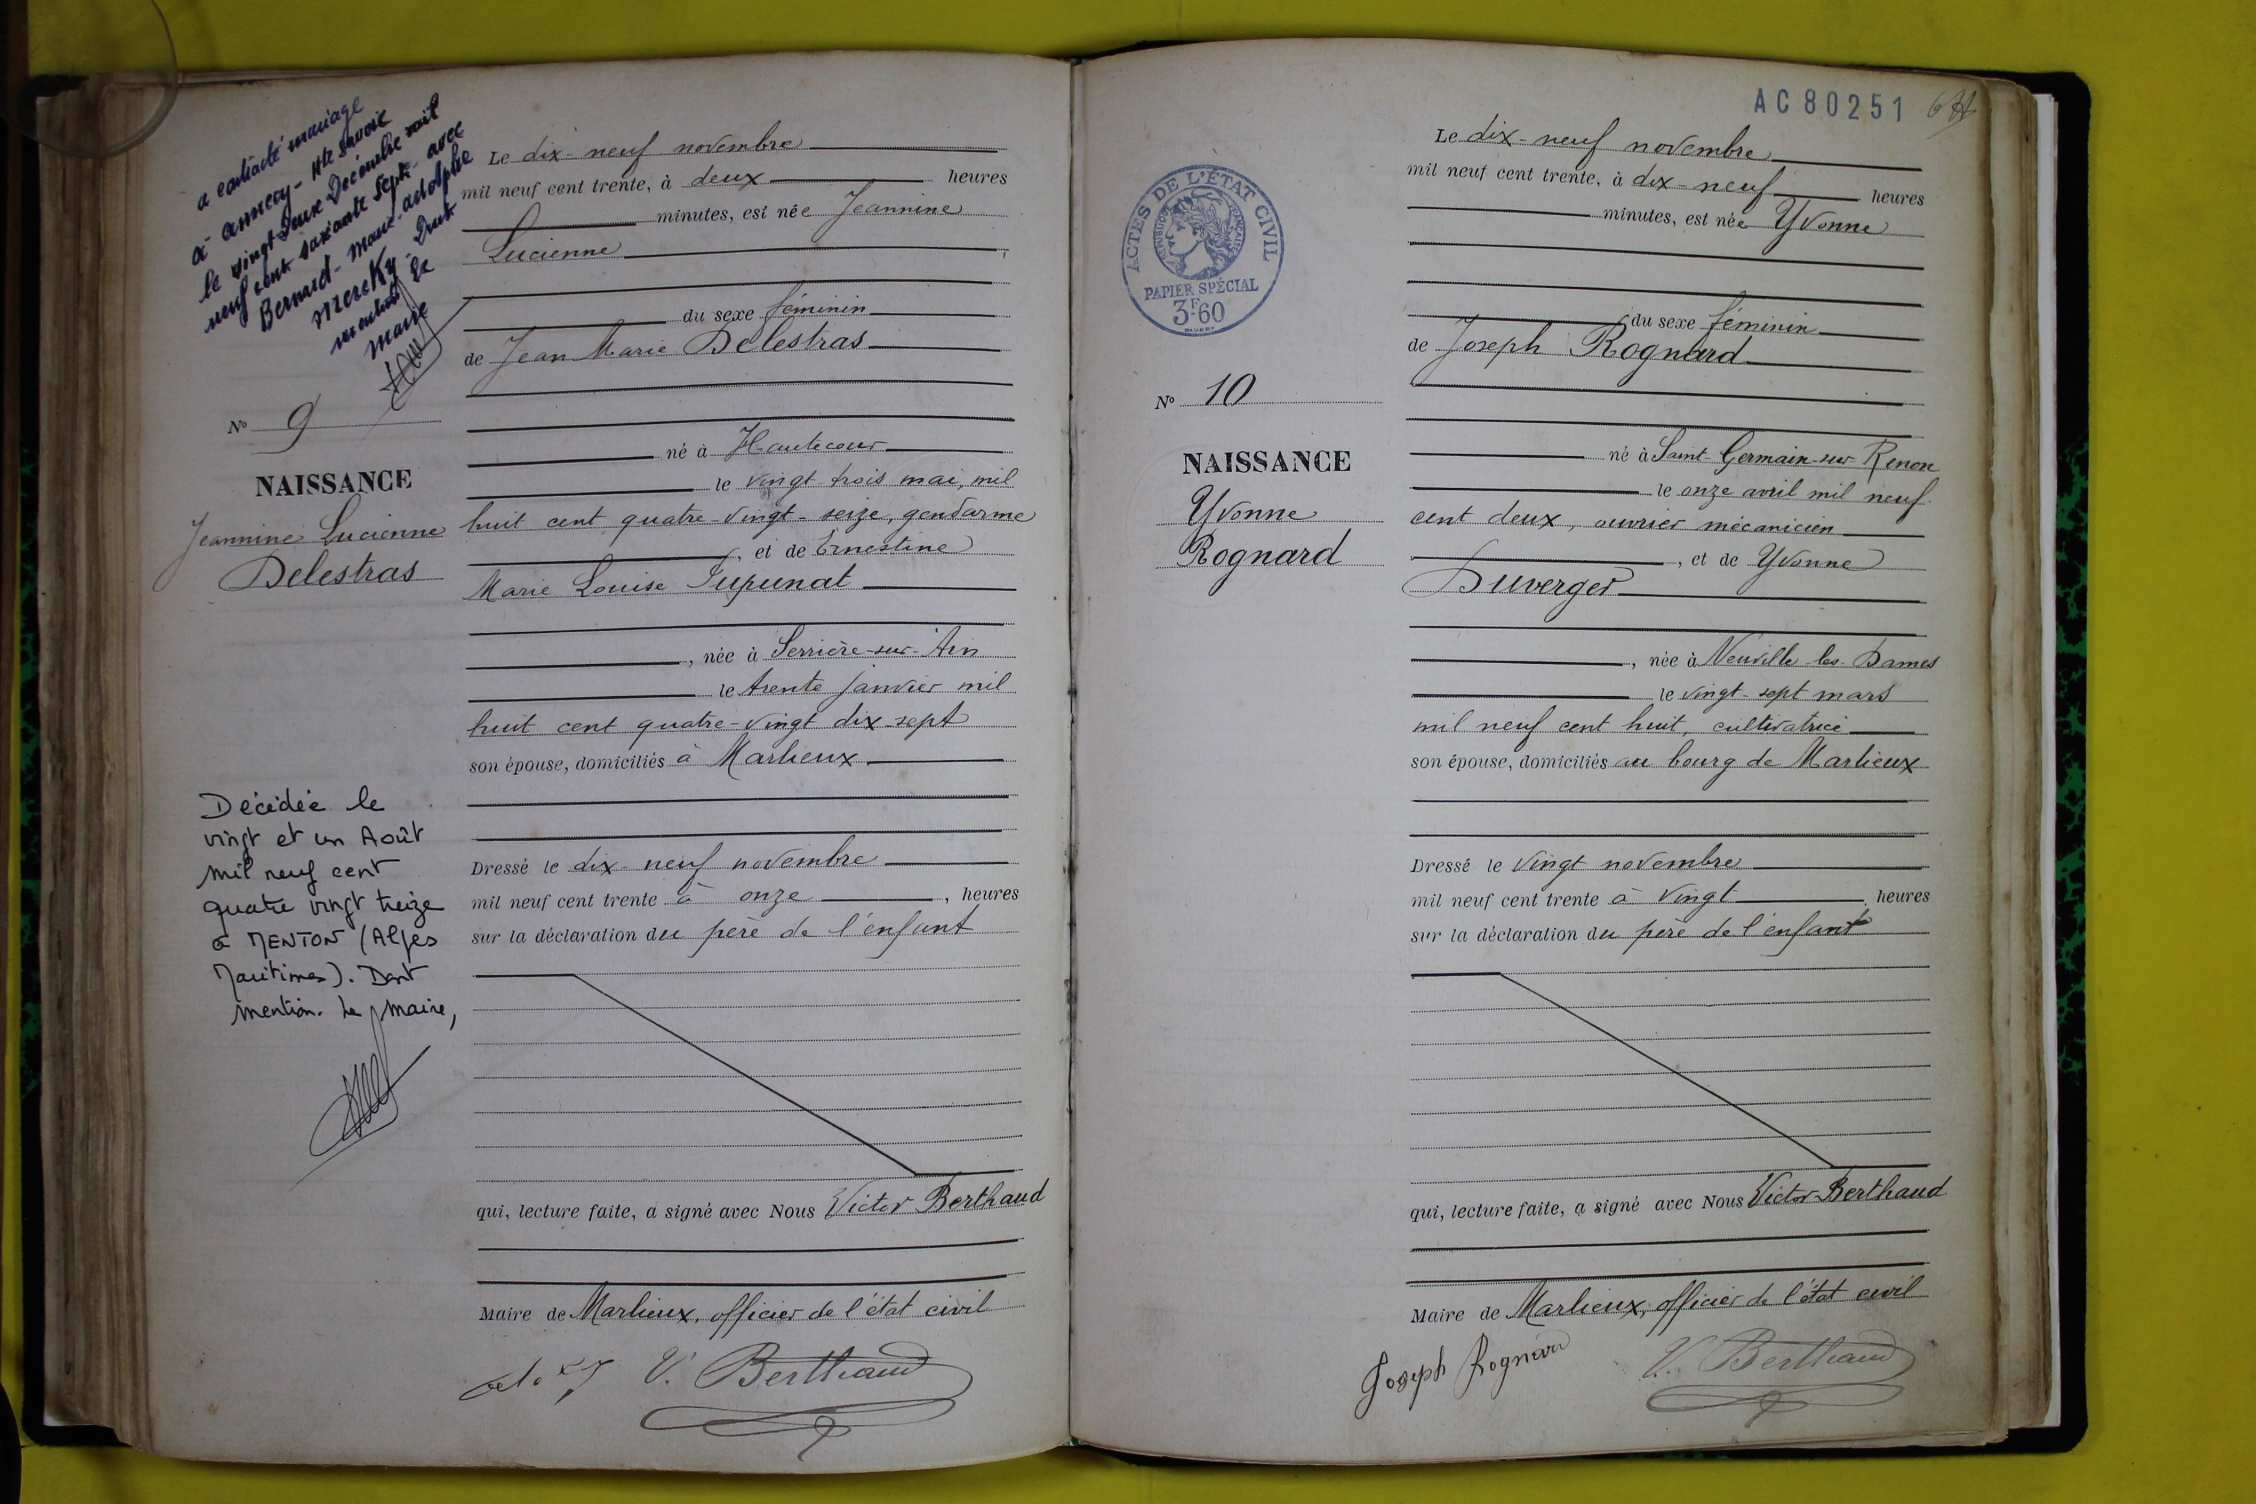 a contracté mariage
à Annecy - Hte Savoie
le vingt deux Décembre mil
neuf cent soixante sept - avec
Bernard - Marie - Adolphe
Mereky. Dont
mention Le
Maire
N° 9
NAISSANCE
Jeannine Lucienne
Delestras
Décédée le
vingt et un Août
mil neuf cent
quatre vingt treize
à MENTON (Alpes
Maritimes). Dont
mention. Le Maire,
Le dix-neuf novembre
mil neuf cent trente, à deux heures
minutes, est née Jeannine
Lucienne
du sexe féminin
de Jean Marie Delestras
né à Hautecour
le vingt trois mai, mil
huit cent quatre-vingt-seize, gendarme
, et de Ernestine
Marie Louise
, née à Serrière-sur-Ain
le trente janvier mil
huit cent quatre-vingt dix-sept
son épouse, domiciliés à Marlieux
Dressé le dix-neuf novembre
mil neuf cent trente à onze , heures
sur la déclaration du père de l'enfant
qui, lecture faite, a signé avec Nous Victor Berthaud
Maire de Marlieux, officier de l'état civil
V. Berthaud
AC 80251
ACTES DE L'ÉTAT CIVIL
RÉPUBLIQUE FRANÇAISE
PAPIER SPÉCIAL
3F60
N° 10
NAISSANCE
Yvonne
Rognard
Le dix-neuf novembre
mil neuf cent trente, à dix-neuf heures
minutes, est née Yvonne
du sexe féminin
de Joseph Rognard
né à Saint-Germain-sur-Renon
le onze avril mil neuf
cent deux, ouvrier mécanicien
, et de Yvonne
Duverger
, née à Neuville-les-Dames
le vingt-sept mars
mil neuf cent huit, cultivatrice
son épouse, domiciliés au bourg de Marlieux
Dressé le vingt novembre
mil neuf cent trente à vingt , heures
sur la déclaration du père de l'enfant
qui, lecture faite, a signé avec Nous Victor Berthaud
Maire de Marlieux, officier de l'état civil
Joseph Rognard V. Berthaud